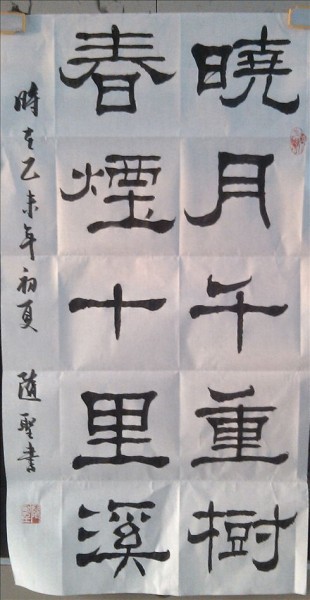 曉月千重樹
春煙十里溪
時在乙未年初夏 随聖書